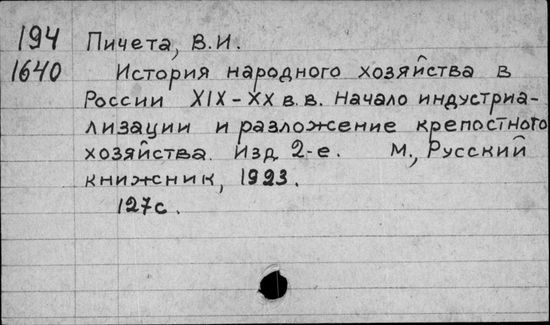 194 Пичета, В.И.
1640 История народного хозяйства в
России XIX-XX в.в. Начало индустриа-
лизации и разложение крепостного
хозяйства. Изд 2-е. М., Русский
книжник, 1923.
127с.